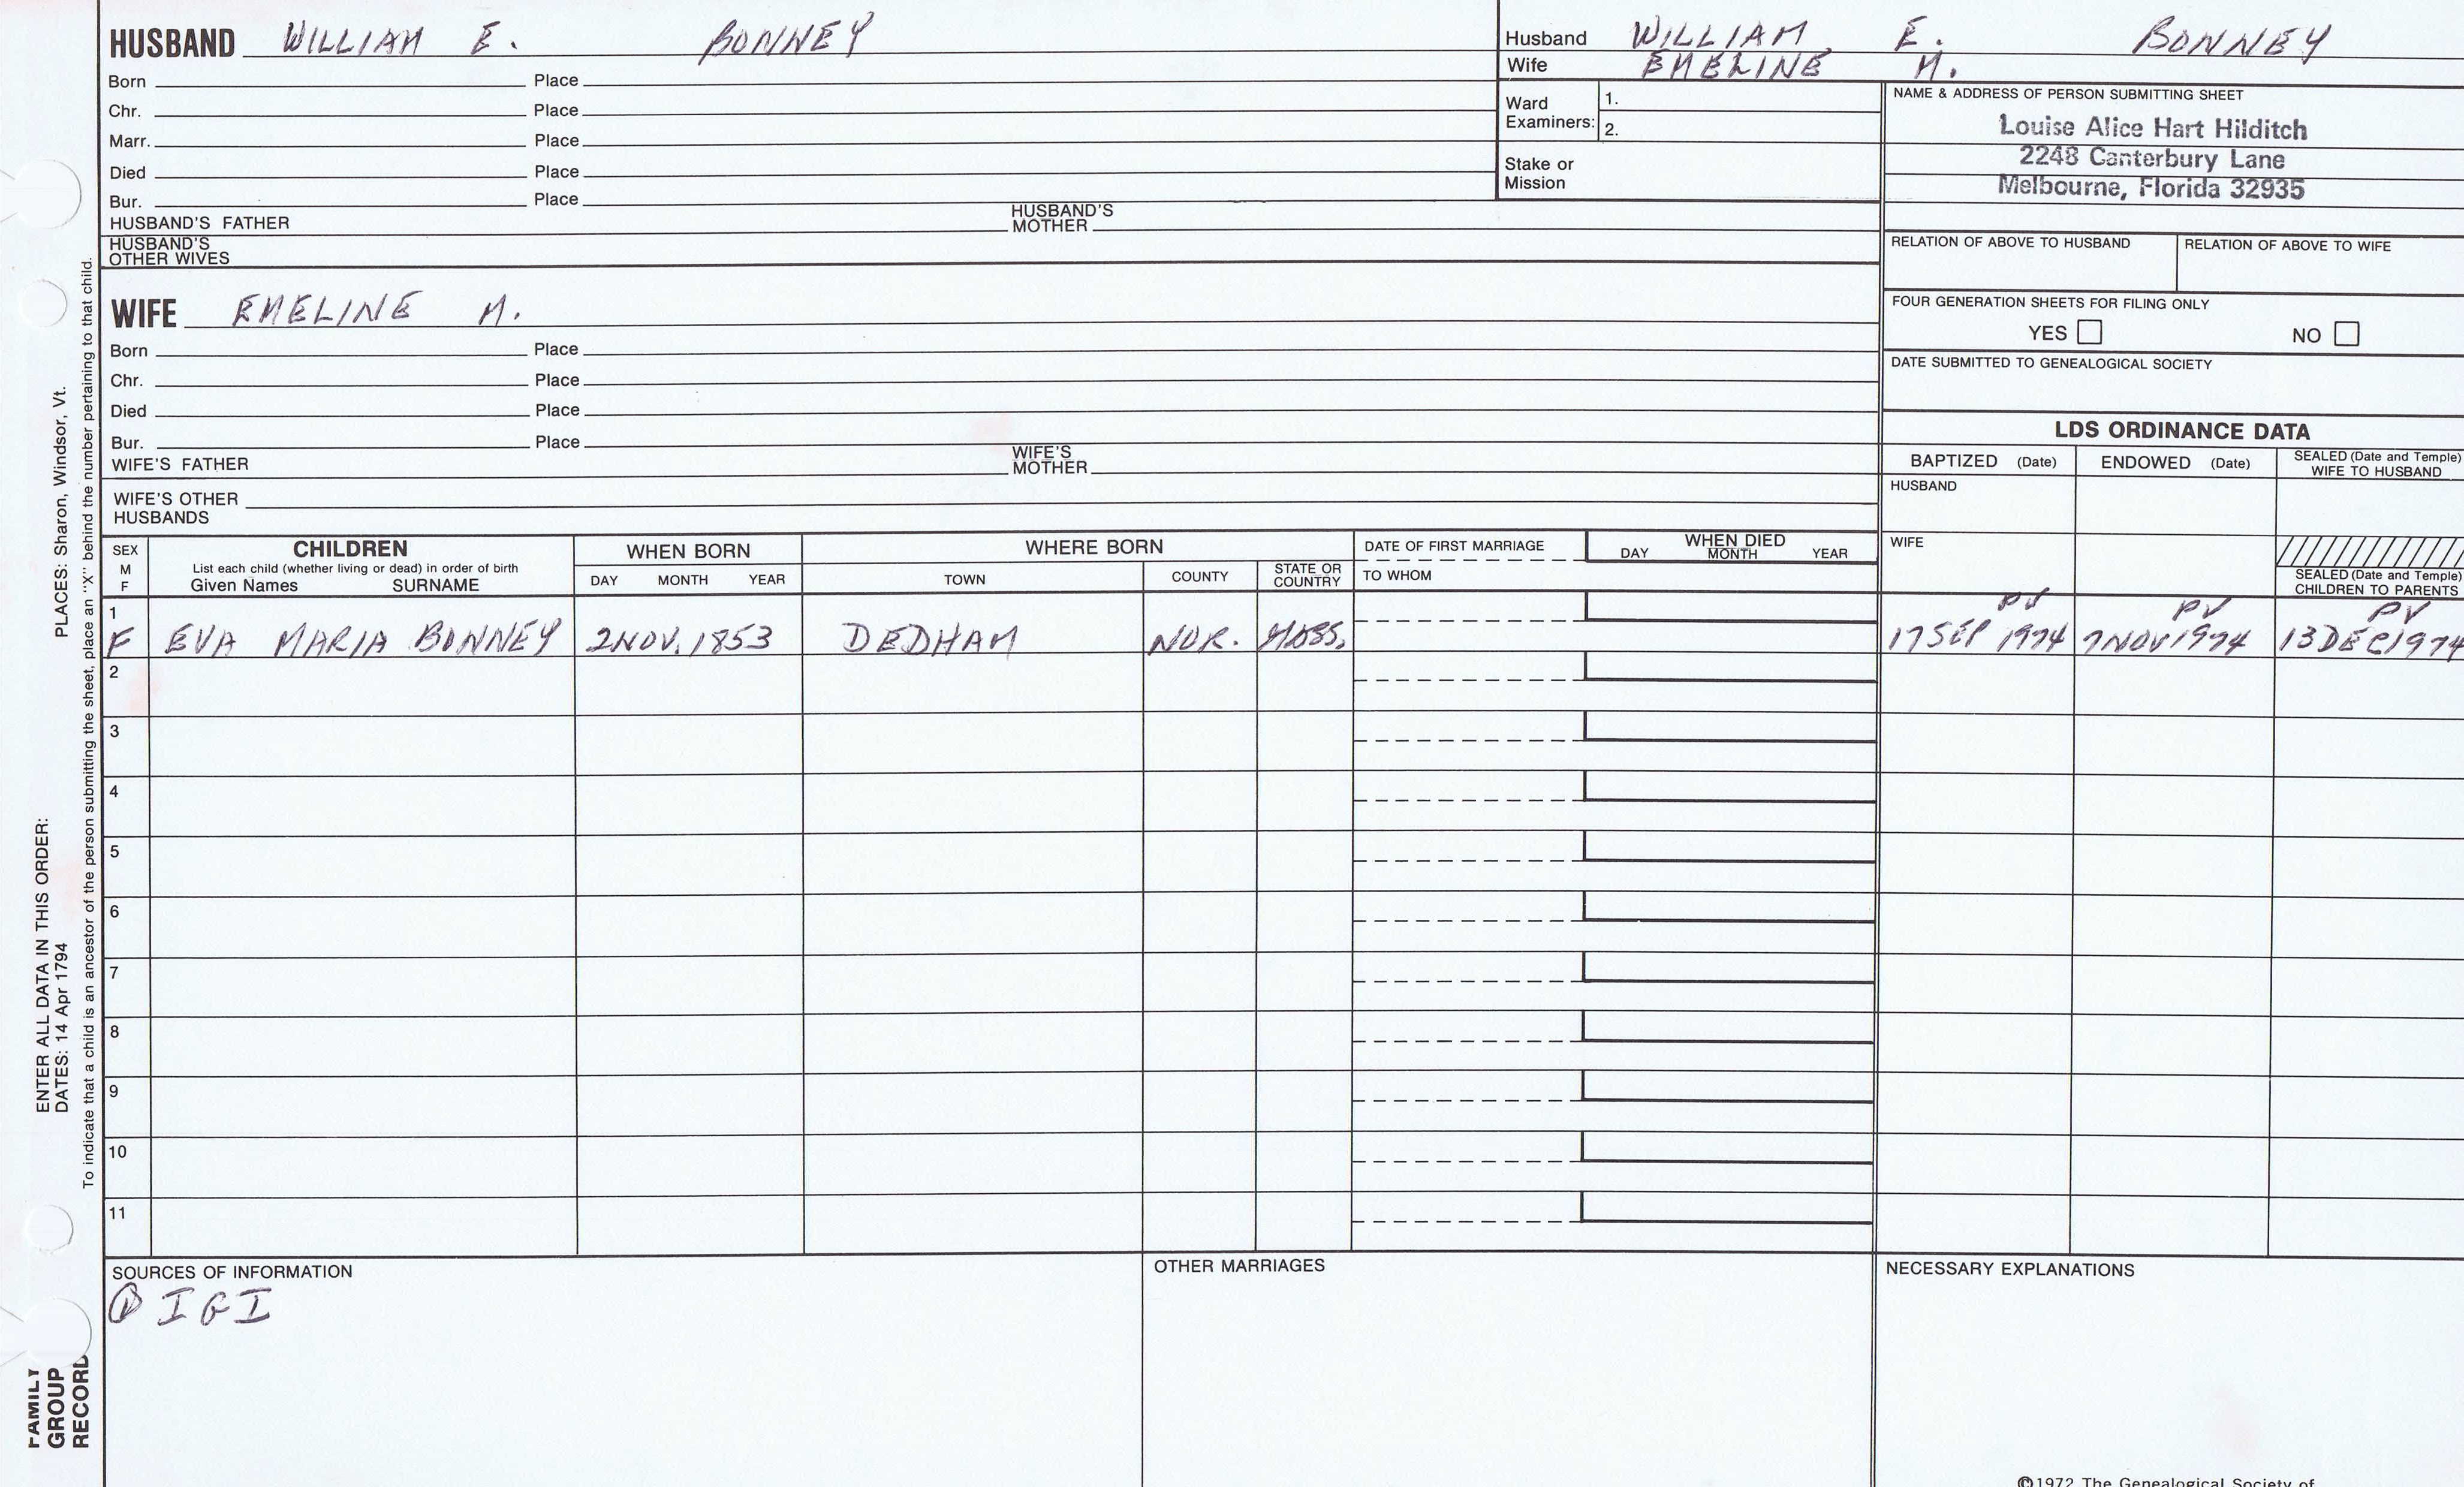 HUSBAND WILLIAM E. BONNEY
Born Place
Chr. Place
Marr. Place
Died Place
Bur. Place
HUSBAND'S FATHER HUSBAND'S MOTHER
HUSBAND'S OTHER WIVES
Husband WILLIAM E. BONNEY
Wife EMELINE M.
Ward Examiners: 1.
2.
Stake or Mission
NAME & ADDRESS OF PERSON SUBMITTING SHEET
Louise Alice Hart Hilditch
2248 Canterbury Lane
Melbourne, Florida 32935
RELATION OF ABOVE TO HUSBAND RELATION OF ABOVE TO WIFE
FOUR GENERATION SHEETS FOR FILING ONLY
YES NO
DATE SUBMITTED TO GENEALOGICAL SOCIETY
WIFE EMELINE M.
Born Place
Chr. Place
Died Place
Bur. Place
WIFE'S FATHER WIFE'S MOTHER
WIFE'S OTHER HUSBANDS
LDS ORDINANCE DATA
BAPTIZED (Date) ENDOWED (Date) SEALED (Date and Temple) WIFE TO HUSBAND
HUSBAND
WIFE
SEALED (Date and Temple) CHILDREN TO PARENTS
SEX M F
CHILDREN
List each child (whether living or dead) in order of birth
Given Names SURNAME
WHEN BORN
DAY MONTH YEAR
WHERE BORN
TOWN COUNTY STATE OR COUNTRY
DATE OF FIRST MARRIAGE
TO WHOM
WHEN DIED
DAY MONTH YEAR
1
PV PV PV
F EVA MARIA BONNEY 2 NOV. 1853 DEDHAM NOR. MASS. 17 SEP 1974 7 NOV 1974 13 DEC 1974
2
3
4
5
6
7
8
9
10
11
SOURCES OF INFORMATION
① IGI
OTHER MARRIAGES
NECESSARY EXPLANATIONS
©1972 The Genealogical Society of
ENTER ALL DATA IN THIS ORDER:
DATES: 14 Apr 1794 PLACES: Sharon, Windsor, Vt.
To indicate that a child is an ancestor of the person submitting the sheet, place an "X" behind the number pertaining to that child.
FAMILY
GROUP
RECORD